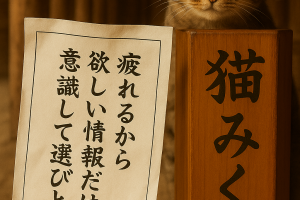 疲れるから
欲しい情報だけ
意識して選びと
猫みく